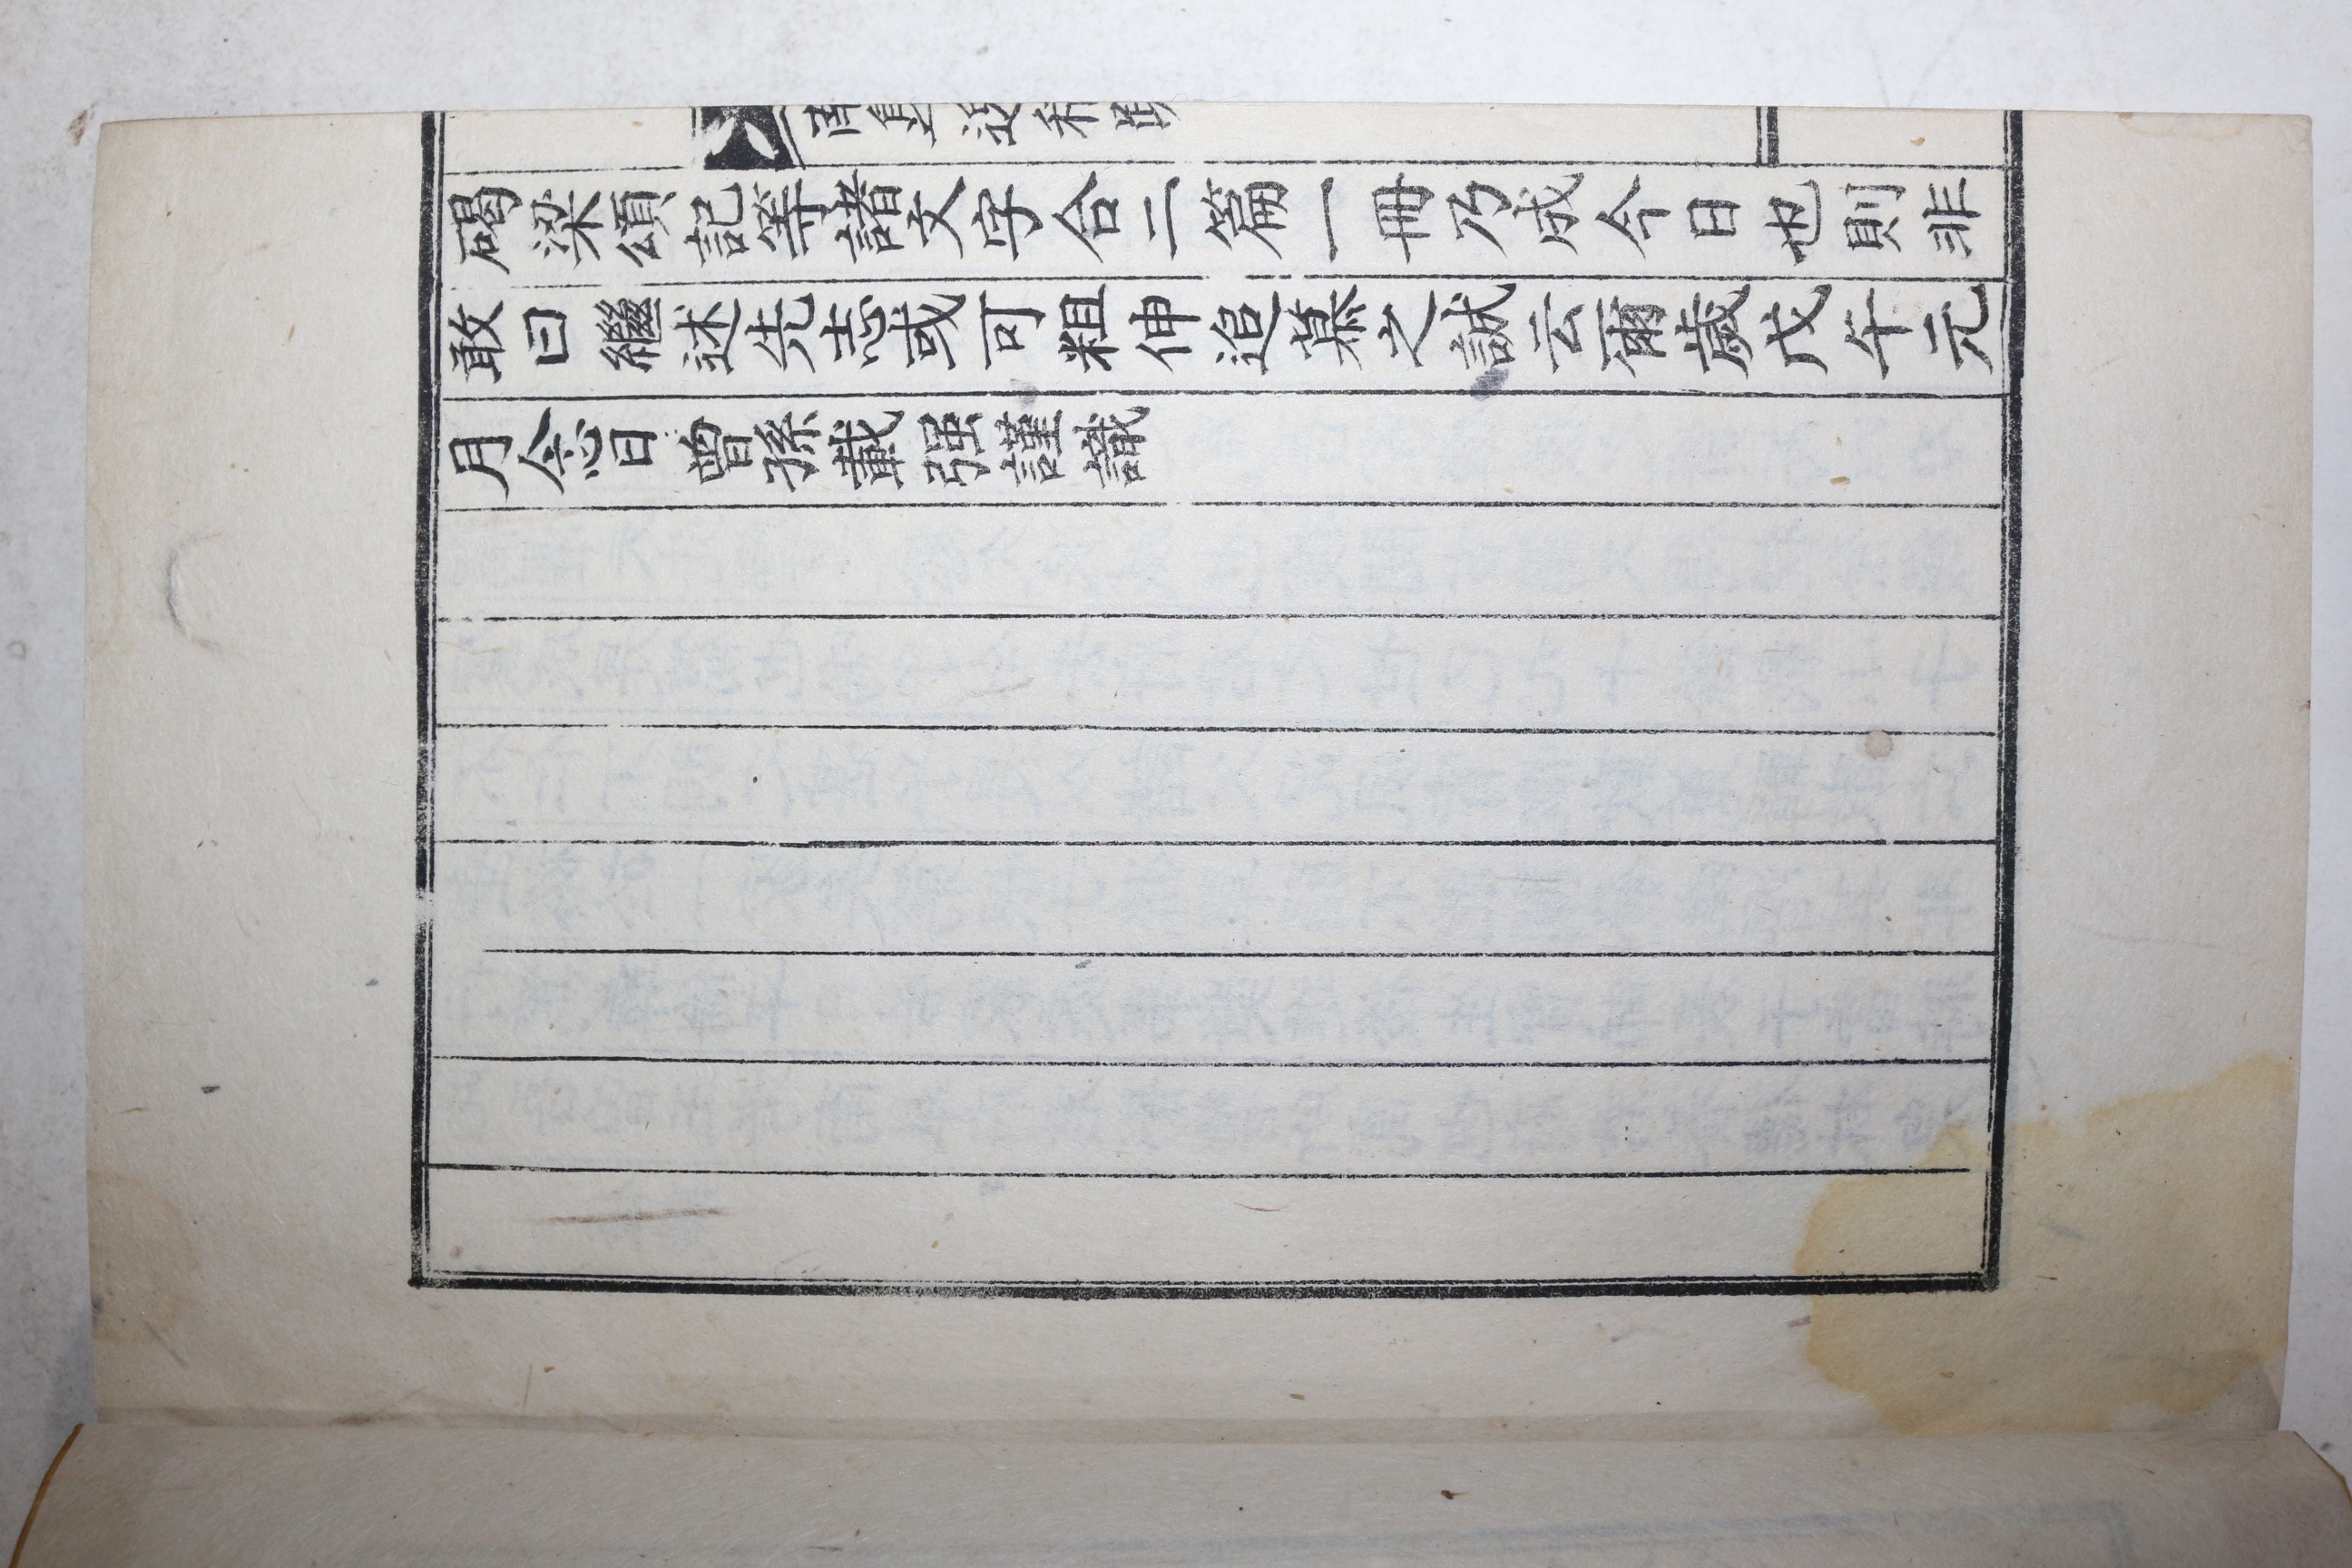 碣梁頌記等諸文字合二篇一冊乃成今日也則非
敢曰繼述先志或可粗伸追慕之誠云爾歲戊午元
月念日曾孫載強謹識